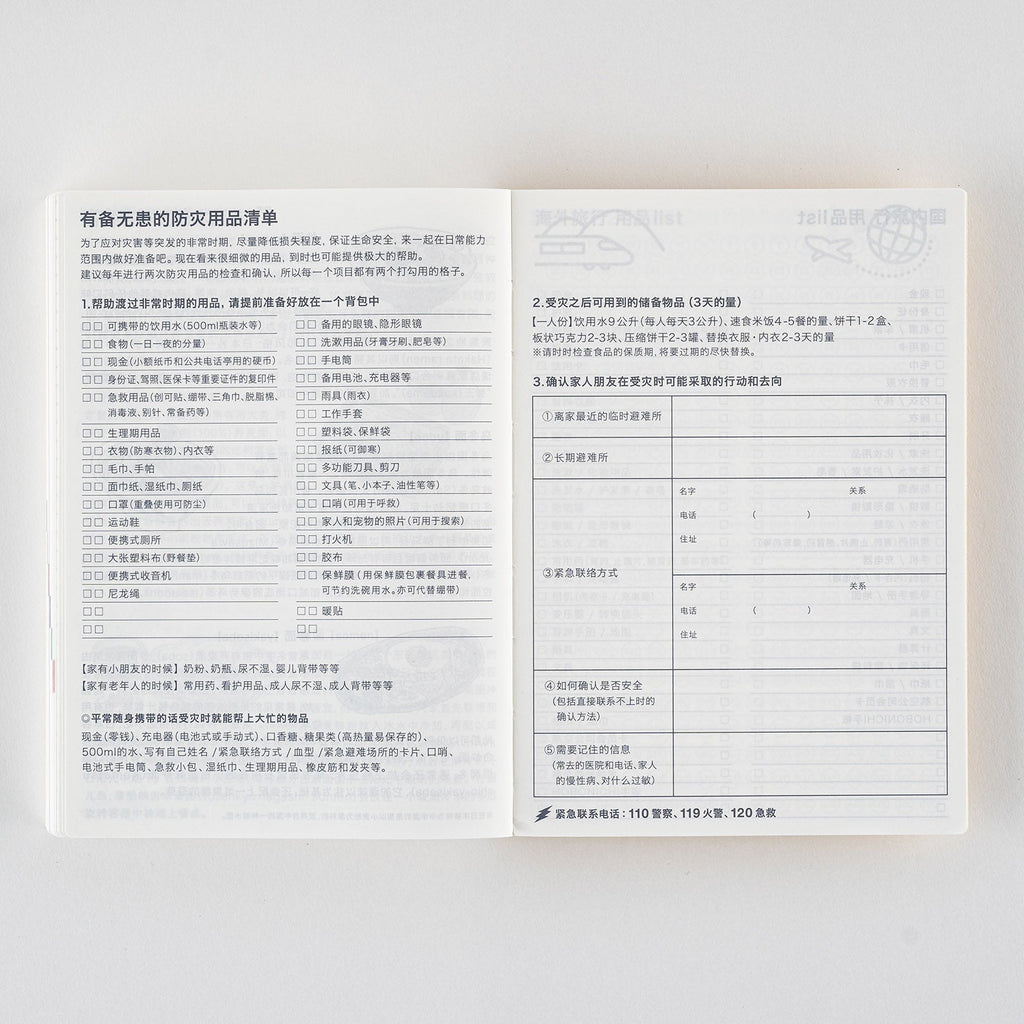 有备无患的防灾用品清单
为了应对灾害等突发的非常时期, 尽量降低损失程度, 保证生命安全, 来一起在日常能力
范围内做好准备吧。现在看来很细微的用品, 到时也可能提供极大的帮助。
建议每年进行两次防灾用品的检查和确认, 所以每一个项目都有两个打勾用的格子。
1.帮助渡过非常时期的用品, 请提前准备好放在一个背包中
□□ 可携带的饮用水(500ml瓶装水等)
□□ 食物(一日一夜的分量)
□□ 现金(小额纸币和公共电话亭用的硬币)
□□ 身份证、驾照、医保卡等重要证件的复印件
□□ 急救用品(创可贴、绷带、三角巾、脱脂棉、
消毒液、别针、常备药等)
□□ 生理期用品
□□ 衣物(防寒衣物)、内衣等
□□ 毛巾、手帕
□□ 面巾纸、湿纸巾、厕纸
□□ 口罩(重叠使用可防尘)
□□ 运动鞋
□□ 便携式厕所
□□ 大张塑料布(野餐垫)
□□ 便携式收音机
□□ 尼龙绳
□□
□□
□□ 备用的眼镜、隐形眼镜
□□ 洗漱用品(牙膏牙刷、肥皂等)
□□ 手电筒
□□ 备用电池、充电器等
□□ 雨具(雨衣)
□□ 工作手套
□□ 塑料袋、保鲜袋
□□ 报纸(可御寒)
□□ 多功能刀具、剪刀
□□ 文具(笔、小本子、油性笔等)
□□ 口哨(可用于呼救)
□□ 家人和宠物的照片(可用于搜索)
□□ 打火机
□□ 胶布
□□ 保鲜膜(用保鲜膜包裹餐具进餐,
可节约洗碗用水。亦可代替绷带)
□□ 暖贴
□□
【家有小朋友的时候】奶粉、奶瓶、尿不湿、婴儿背带等等
【家有老年人的时候】常用药、看护用品、成人尿不湿、成人背带等等
◎平常随身携带的话受灾时就能帮上大忙的物品
现金(零钱)、充电器(电池式或手动式)、口香糖、糖果类(高热量易保存的)、
500ml的水、写有自己姓名/紧急联络方式/血型/紧急避难场所的卡片、口哨、
电池式手电筒、急救小包、湿纸巾、生理期用品、橡皮筋和发夹等。
2.受灾之后可用到的储备物品 (3天的量)
【一人份】饮用水9公升(每人每天3公升)、速食米饭4-5餐的量、饼干1-2盒、
板状巧克力2-3块、压缩饼干2-3罐、替换衣服·内衣2-3天的量
※请时时检查食品的保质期, 将要过期的尽快替换。
3.确认家人朋友在受灾时可能采取的行动和去向
①离家最近的临时避难所
②长期避难所
③紧急联络方式
名字 关系
电话 ( )
住址
名字 关系
电话 ( )
住址
④如何确认是否安全
(包括直接联系不上时的
确认方法)
⑤需要记住的信息
(常去的医院和电话、家人
的慢性病、对什么过敏)
紧急联系电话:110 警察、119 火警、120 急救